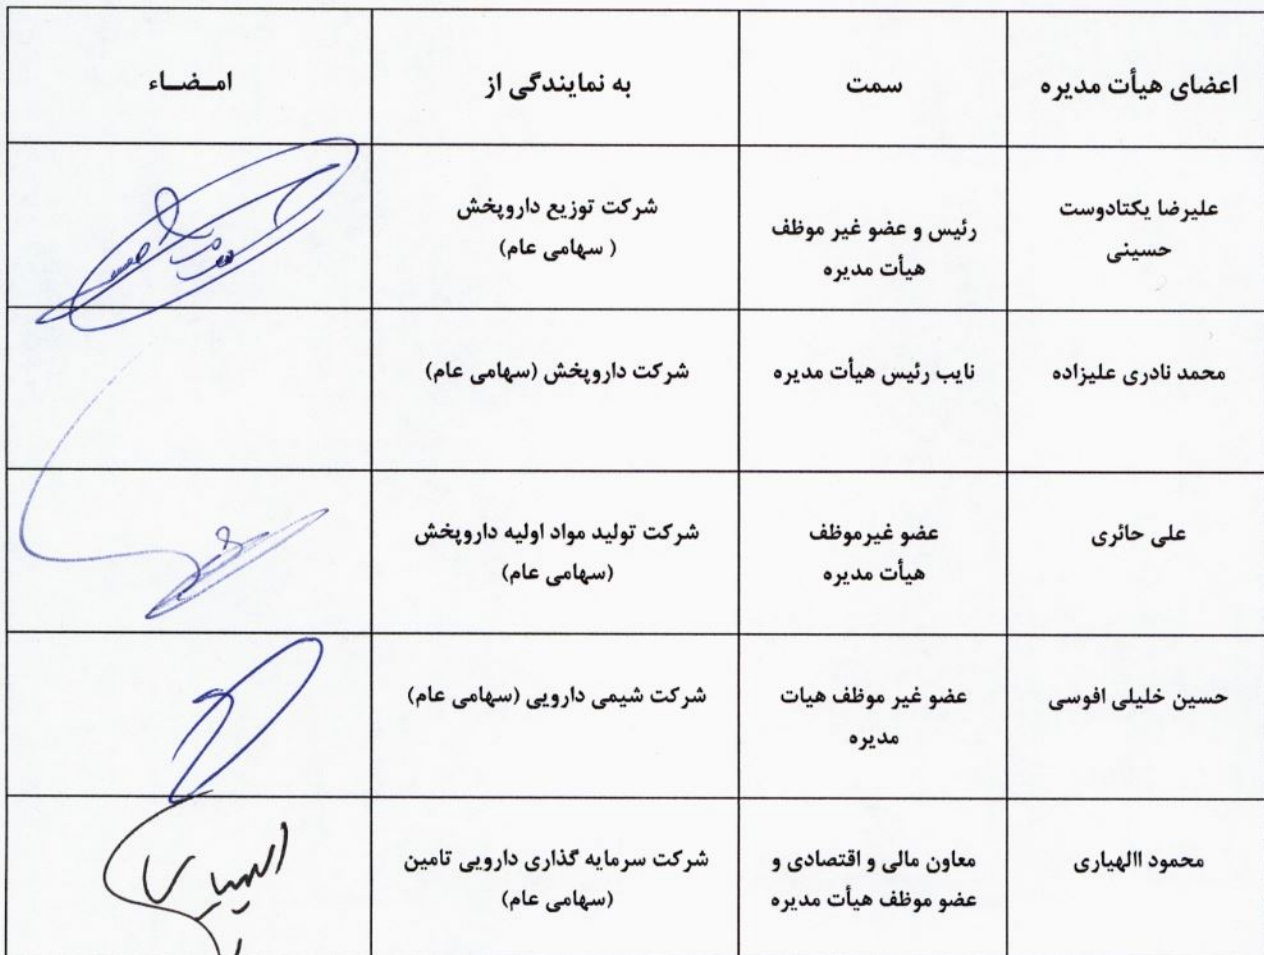 اعضای هیأت مدیره
سمت
به نمایندگی از
امـضـاء
علیرضا یکتادوست
حسینی
رئیس و عضو غیر موظف
هیأت مدیره
شرکت توزیع داروپخش
( سهامی عام)
محمد نادری علیزاده
نایب رئیس هیأت مدیره
شرکت داروپخش (سهامی عام)
علی حائری
عضو غیرموظف
هیأت مدیره
شرکت تولید مواد اولیه داروپخش
(سهامی عام)
حسین خلیلی افوسی
عضو غیر موظف هیات
مدیره
شرکت شیمی دارویی (سهامی عام)
محمود االهیاری
معاون مالی و اقتصادی و
عضو موظف هیأت مدیره
شرکت سرمایه گذاری دارویی تامین
(سهامی عام)